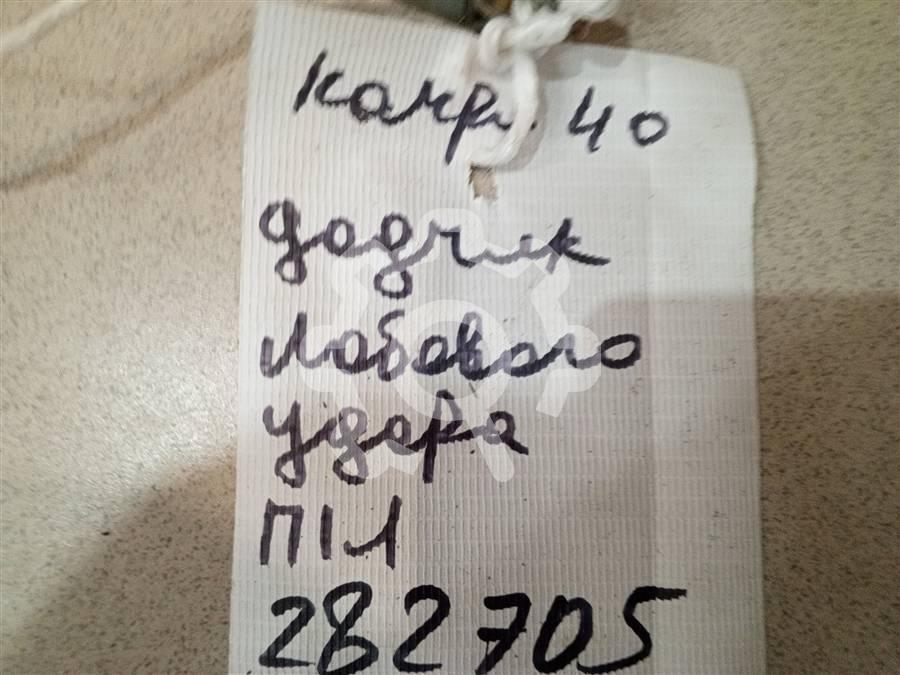 Камр. 40
дадчик
лобового
удара
П1Л
282705